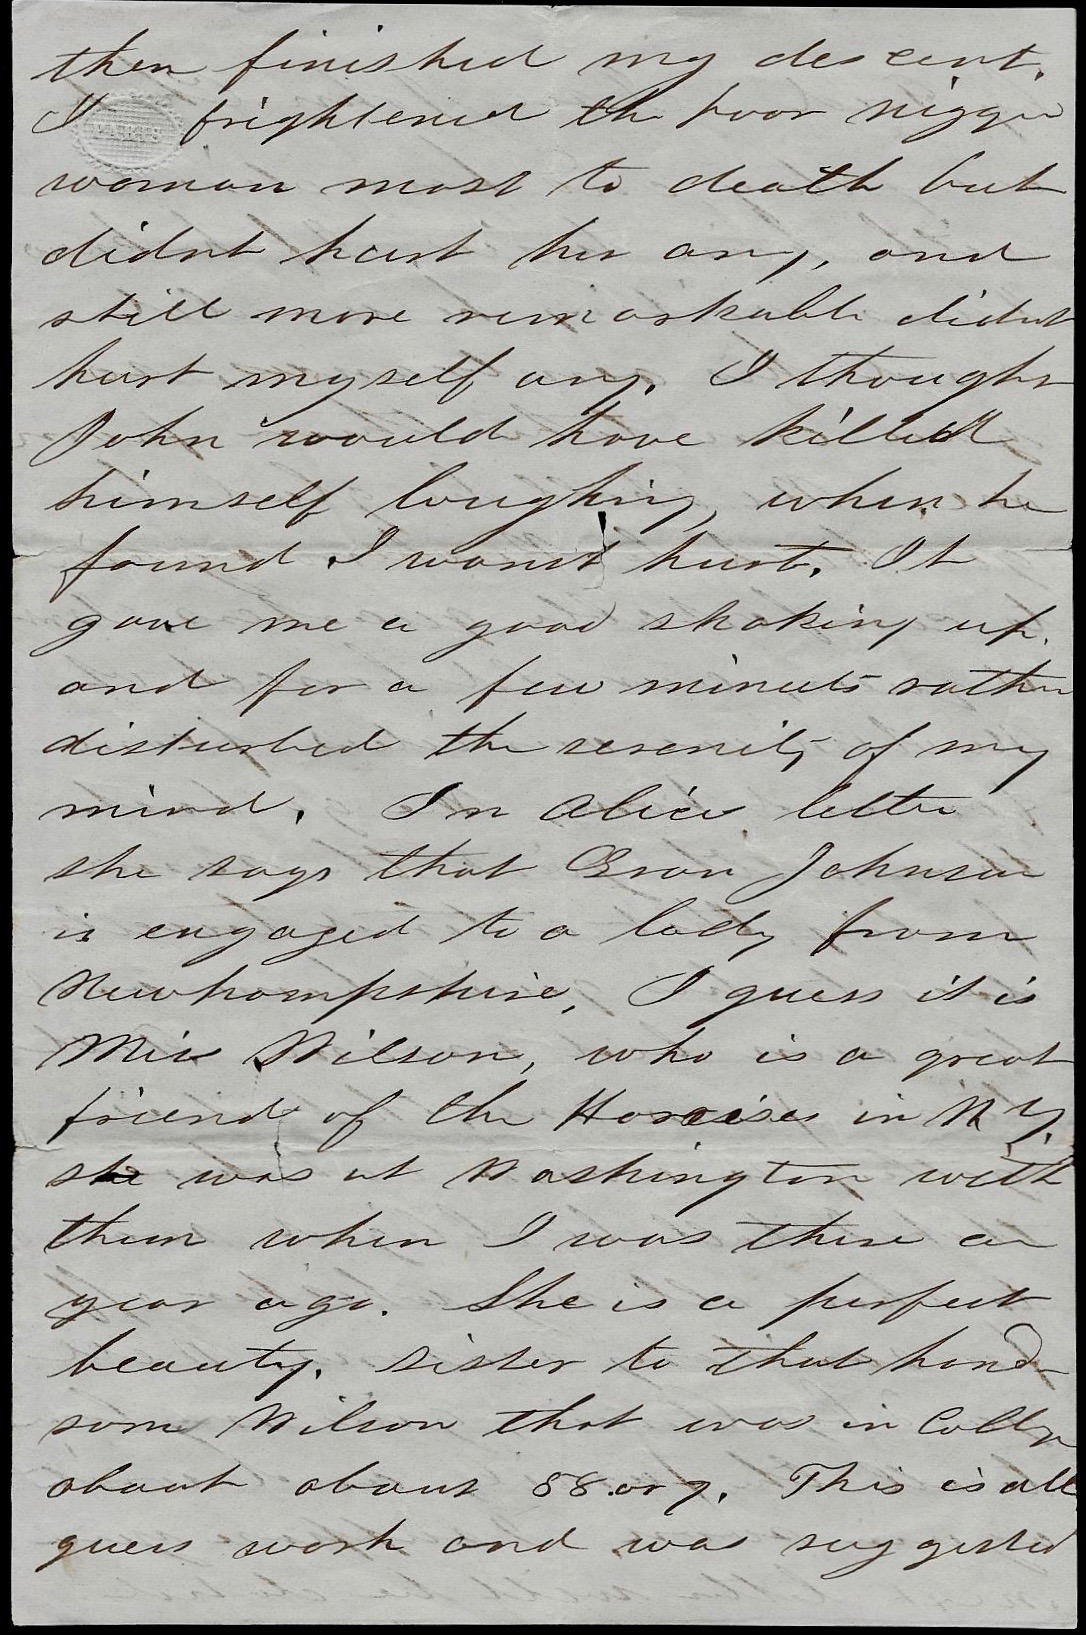 then finished my descent.
I frightened the poor nigger
woman most to death but
didnt hurt her any, and
still more remarkable didnt
hurt myself any. I thought
John would have killed
himself laughing, when he
found I wasnt hurt. It
gave me a good shaking up.
and for a few minuets rather
disturbed the serenity of my
mind. In Alices letter
she says that Evan Johnson
is engaged to a lady from
Newhampshire, I guess it is
Miss Wilson, who is a great
friend of the Harrises in N Y.
she was at Washington with
them when I was there a
year ago. She is a perfect
beauty. sister to that hand-
some Wilson that was in Colleg
about about 58. or 7. This is all
guess work and was suggested
PARIS